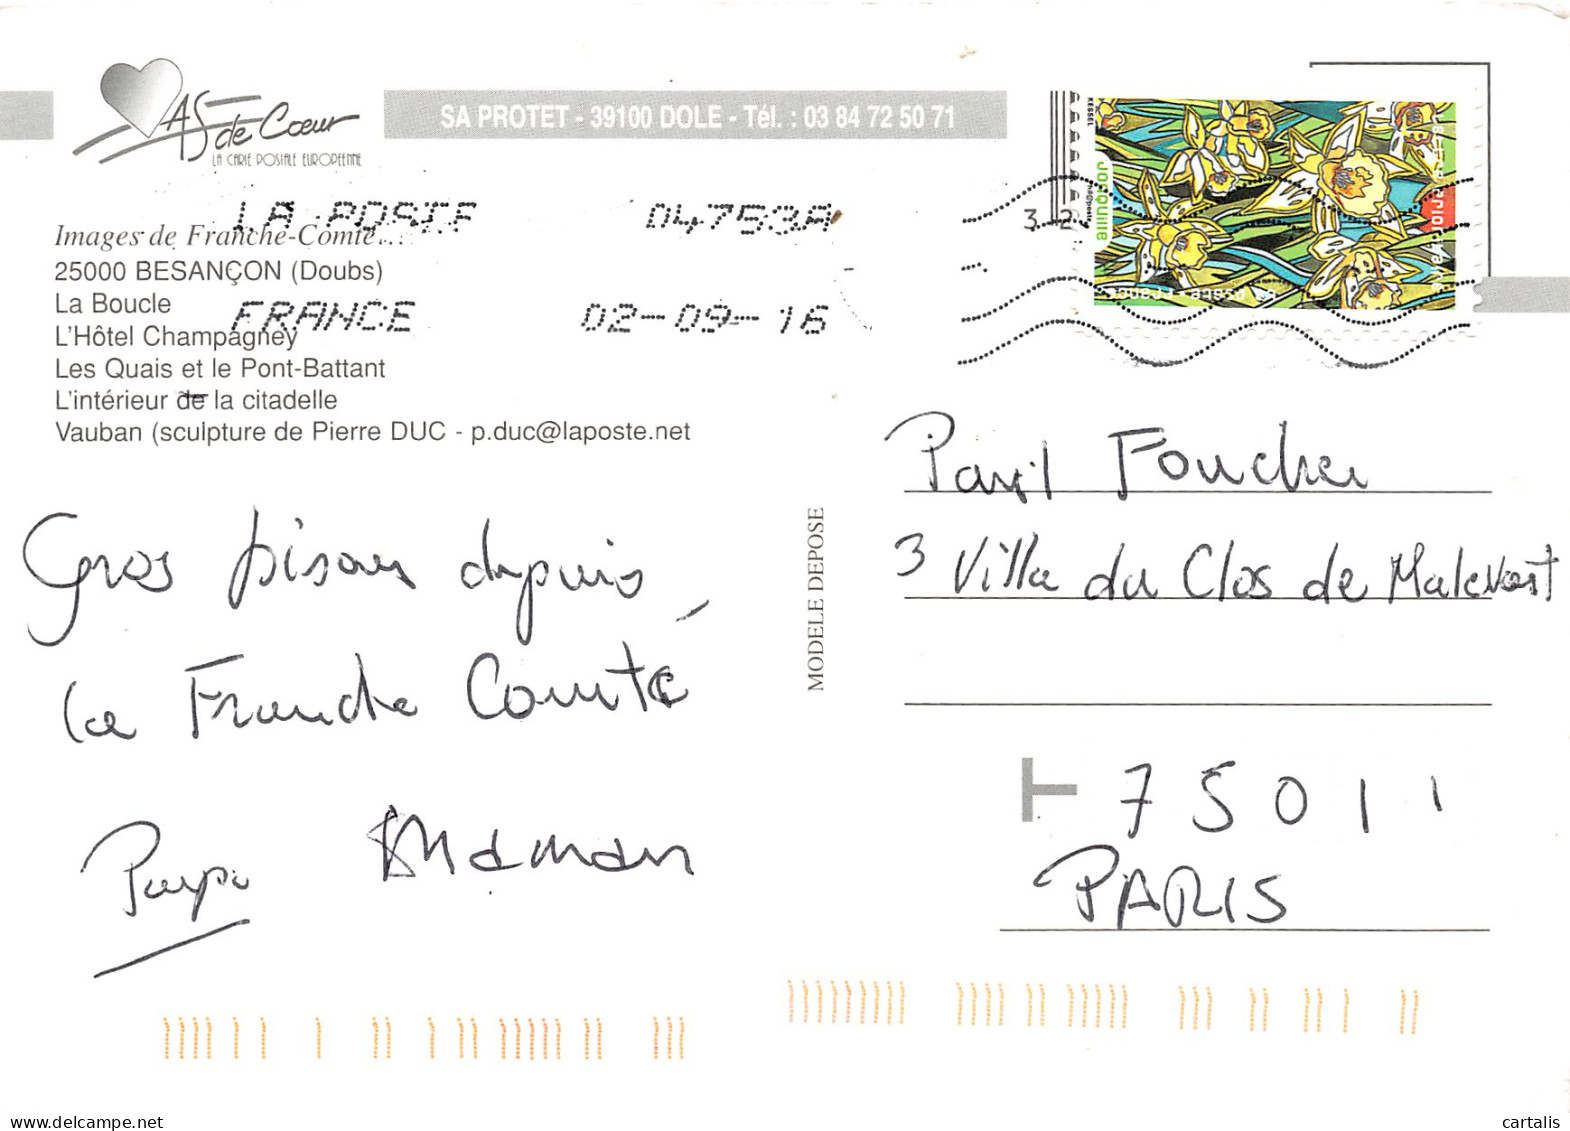 AS de Cœur
LA CARTE POSTALE EUROPÉENNE
SA PROTET - 39100 DOLE - Tél. : 03 84 72 50 71
LA POSTE 04753A
FRANCE 02-09-16
Images de Franche-Comté...
25000 BESANÇON (Doubs)
La Boucle
L'Hôtel Champagney
Les Quais et le Pont-Battant
L'intérieur de la citadelle
Vauban (sculpture de Pierre DUC - p.duc@laposte.net
Gros bisous depuis
la Franche Comté
Papa Maman
MODELE DEPOSE
Jonquille
Foucher
3 Villa du Clos de Malevart
T 75011
PARIS
cartalis